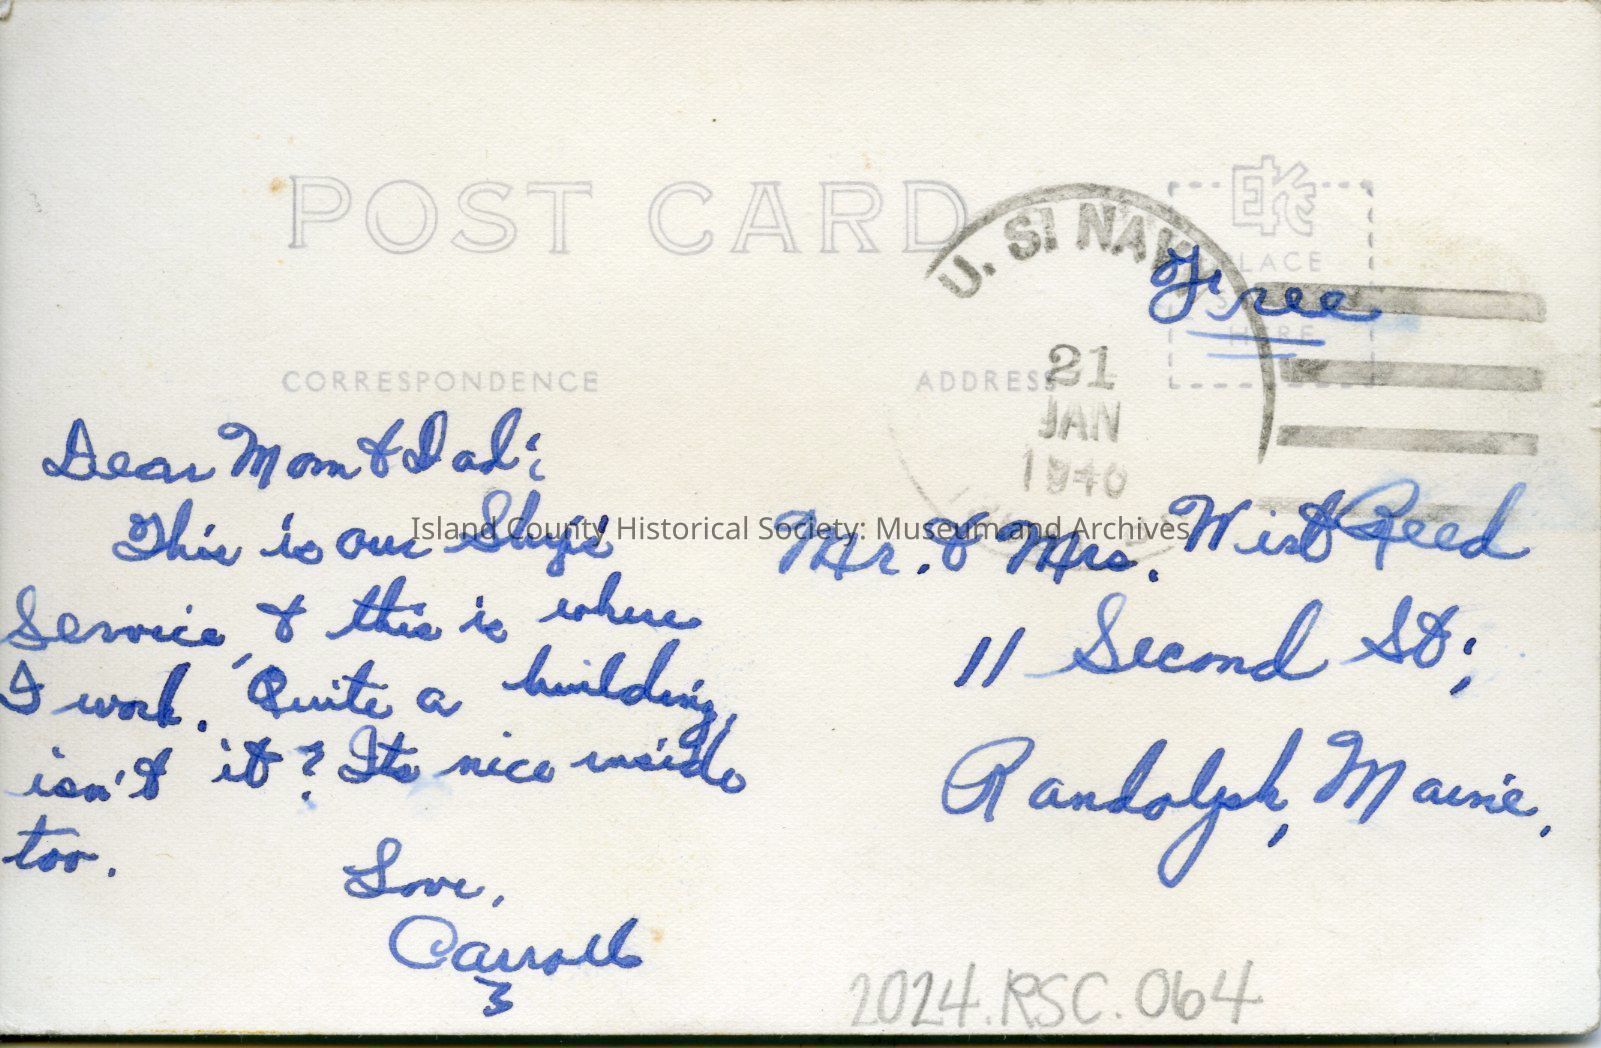 POST CARD
EKC
PLACE
HERE
U. S. NAVY
21
JAN
1946
Free
CORRESPONDENCE
ADDRESS
Dear Mom & Dad:
This is our Ship's
Service, & this is where
I work. Quite a building,
isn't it? Its nice inside
too.
Love,
Carroll
Mr. & Mrs. Wist Reed
11 Second St.,
Randolph, Maine.
Island County Historical Society: Museum and Archives
2024.RSC.064